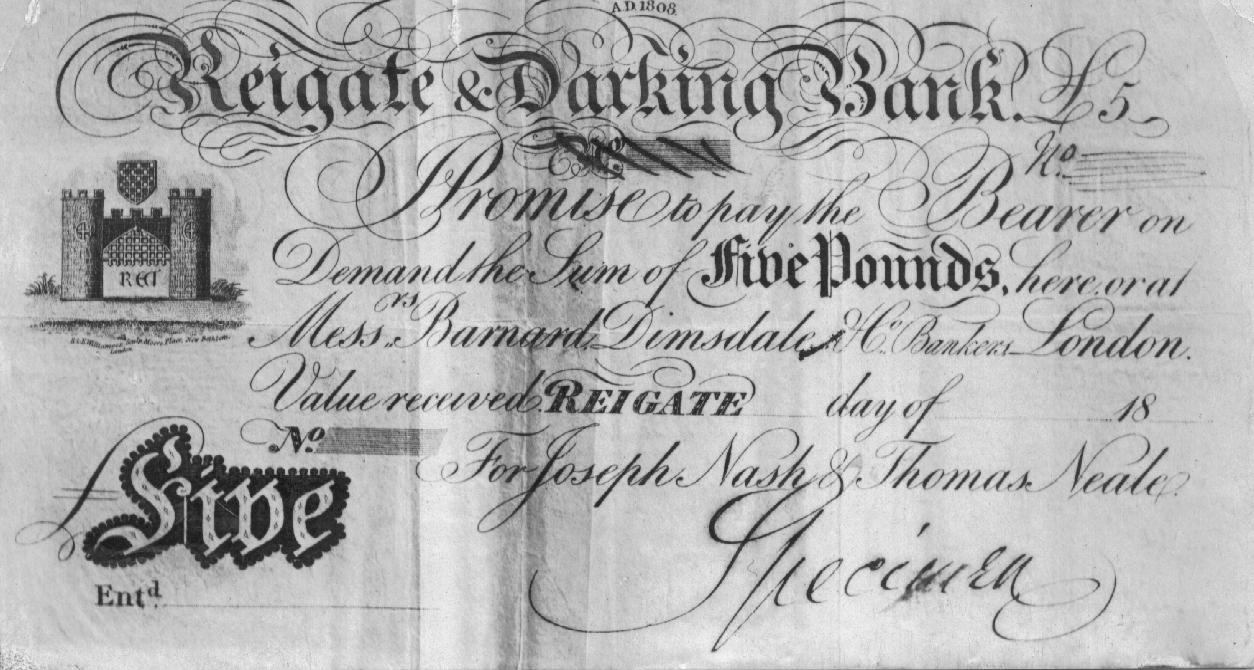 A.D. 1808.
Reigate & Darking Bank. £5
No
No
I Promise to pay the Bearer on
Demand the Sum of Five Pounds, here, or at
Messrs. Barnard, Dimsdale & Co. Bankers London.
REI
London
Value received. REIGATE day of 18
No
For Joseph Nash & Thomas Neale
£Five
Specimen
Entd.